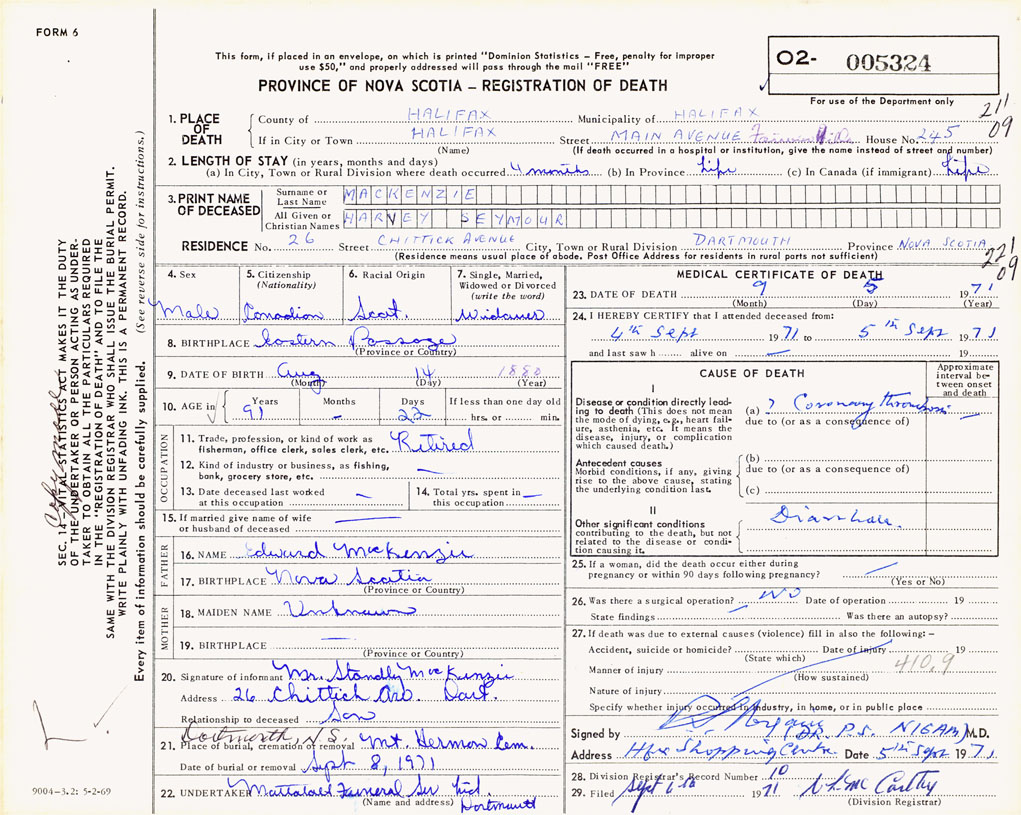 FORM 6
This form, if placed in an envelope, on which is printed "Dominion Statistics – Free, penalty for improper
use $50," and properly addressed will pass through the mail "FREE"
PROVINCE OF NOVA SCOTIA – REGISTRATION OF DEATH
02- 005324
For use of the Department only
211
09
1. PLACE OF DEATH
County of HALIFAX Municipality of HALIFAX
If in City or Town HALIFAX Street MAIN AVENUE House No. 245
(Name) (If death occurred in a hospital or institution, give the name instead of street and number)
2. LENGTH OF STAY (in years, months and days)
(a) In City, Town or Rural Division where death occurred 4 months (b) In Province Life (c) In Canada (if immigrant) Life
3. PRINT NAME OF DECEASED
Surname or Last Name MACKENZIE
All Given or Christian Names HARVEY SEYMOUR
RESIDENCE No. 26 Street CHITTICK AVENUE City, Town or Rural Division DARTMOUTH Province NOVA SCOTIA
(Residence means usual place of abode. Post Office Address for residents in rural parts not sufficient)
221
09
4. Sex Male
5. Citizenship (Nationality) Canadian
6. Racial Origin Scot.
7. Single, Married, Widowed or Divorced (write the word) Widower
8. BIRTHPLACE Eastern Passage
(Province or Country)
9. DATE OF BIRTH Aug 14 1880
(Month) (Day) (Year)
10. AGE in Years 91 Months – Days 22 If less than one day old hrs. or min.
OCCUPATION
11. Trade, profession, or kind of work as fisherman, office clerk, sales clerk, etc. Retired
12. Kind of industry or business, as fishing, bank, grocery store, etc. —
13. Date deceased last worked at this occupation —
14. Total yrs. spent in this occupation —
15. If married give name of wife or husband of deceased —
FATHER
16. NAME Edward MacKenzie
17. BIRTHPLACE Nova Scotia
(Province or Country)
MOTHER
18. MAIDEN NAME Unknown
19. BIRTHPLACE —
(Province or Country)
20. Signature of informant Mr. Standly MacKenzie
Address 26 Chittick Ave. Dart.
Relationship to deceased Son
Dartmouth, N.S.
21. Place of burial, cremation or removal Mt. Hermon Cem.
Date of burial or removal Sept 8, 1971
22. UNDERTAKER Mattatall Funeral Ser Ltd.
(Name and address) Dartmouth
MEDICAL CERTIFICATE OF DEATH
23. DATE OF DEATH 9 5 1971
(Month) (Day) (Year)
24. I HEREBY CERTIFY that I attended deceased from:
4th Sept 1971 to 5th Sept 1971
and last saw h alive on — 19
CAUSE OF DEATH
Approximate interval between onset and death
I
Disease or condition directly leading to death (This does not mean the mode of dying, e.g., heart failure, asthenia, etc. It means the disease, injury, or complication which caused death.)
(a) ? Coronary thrombosis —
due to (or as a consequence of)
Antecedent causes
Morbid conditions, if any, giving rise to the above cause, stating the underlying condition last.
(b)
due to (or as a consequence of)
(c)
II
Other significant conditions contributing to the death, but not related to the disease or condition causing it.
Diarrhoea.
25. If a woman, did the death occur either during pregnancy or within 90 days following pregnancy? —
(Yes or No)
26. Was there a surgical operation? NO Date of operation 19
State findings Was there an autopsy?
27. If death was due to external causes (violence) fill in also the following: –
Accident, suicide or homicide? Date of injury 19
(State which)
Manner of injury 410.9
(How sustained)
Nature of injury
Specify whether injury occurred in industry, in home, or in public place
Signed by (DR. P.S. NIGAM) M.D.
Address Hfx Shopping Centre Date 5th Sept 1971
28. Division Registrar's Record Number 10
29. Filed Sept 6th 1971
(Division Registrar)
SEC. 14 – VITAL STATISTICS ACT MAKES IT THE DUTY
OF THE UNDERTAKER OR PERSON ACTING AS UNDERTAKER
TO OBTAIN ALL THE PARTICULARS REQUIRED
IN THE "REGISTRATION OF DEATH" AND TO FILE THE
SAME WITH THE DIVISION REGISTRAR WHO SHALL ISSUE THE BURIAL PERMIT.
WRITE PLAINLY WITH UNFADING INK. THIS IS A PERMANENT RECORD.
Every item of information should be carefully supplied. (See reverse side for instructions.)
9004-3.2: 5-2-69